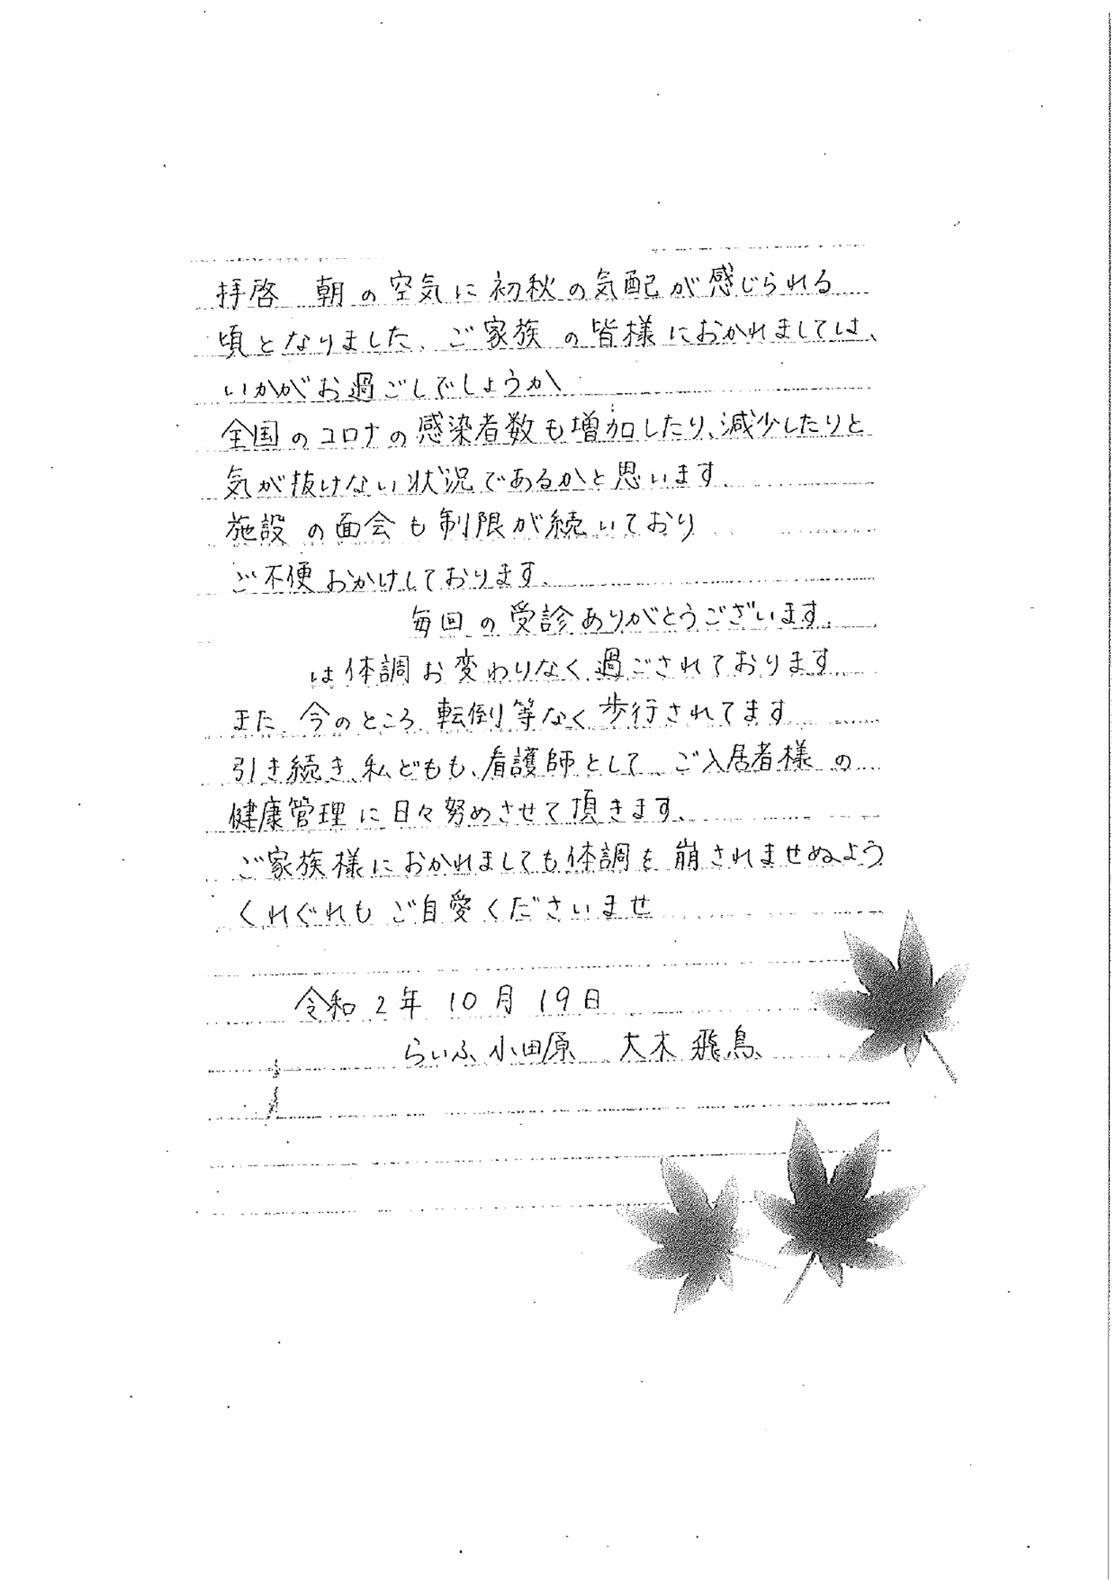 拝啓 朝の空気に初秋の気配が感じられる
頃となりました、ご家族の皆様におかれましては、
いかがお過ごしでしょうか
全国のコロナの感染者数も増加したり、減少したりと
気が抜けない状況であるかと思います。
施設の面会も制限が続いており
ご不便おかけしております。
毎回の受診ありがとうございます。
は体調お変わりなく過ごされております。
また、今のところ、転倒等なく歩行されてます
引き続き、私どもも、看護師として、ご入居者様の
健康管理に日々努めさせて頂きます。
ご家族様におかれましても体調を崩されませぬよう
くれぐれもご自愛くださいませ
令和2年10月19日
らいふ小田原 大木飛鳥